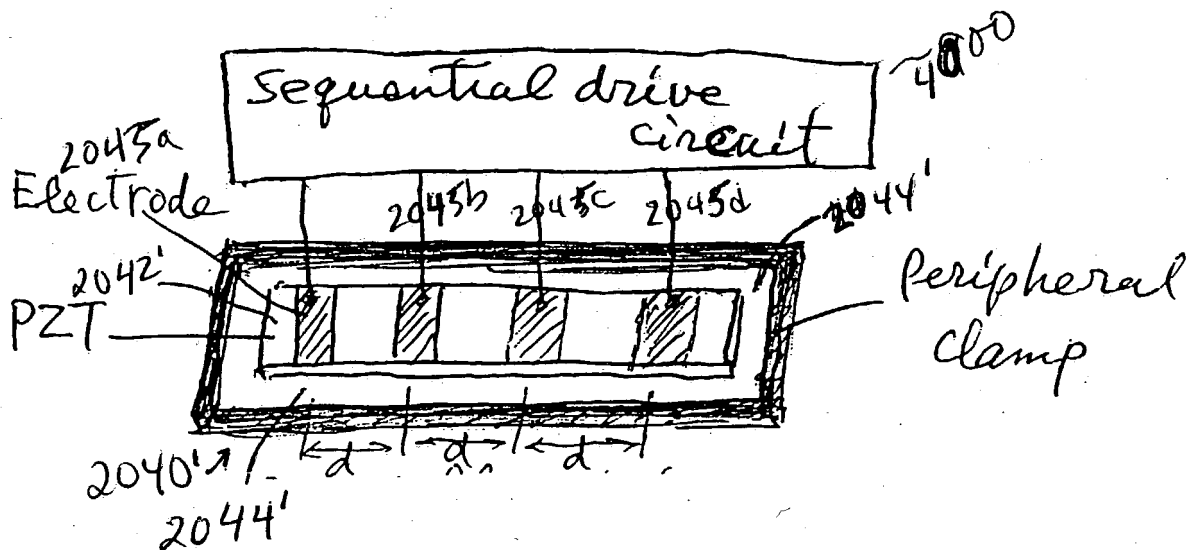 4000
Sequential drive
circuit
2045a
Electrode
2045b 2045c 2045d
2044'
2042'
PZT
Peripheral
Clamp
d d d
2040'
2044'